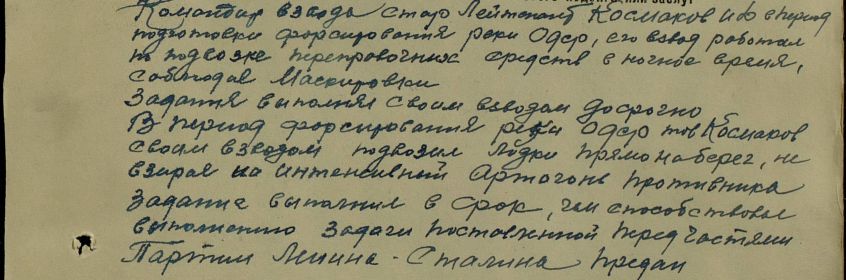 Командир взвода стар Лейтенант Космаков И Ф в период
подготовки форсирования реки Одер, его взвод работал
по подвозке переправочных средств в ночное время,
соблюдая Маскировки
Задания выполнял своим взводом досрочно
В период форсирования реки Одер тов Космаков
своим взводом подвозил лодки прямо на берег, не
взирая на интенсивный Артогонь противника
Задание выполнил в срок, чем способствовал
выполнению задачи поставленной перед частями
Партии Ленина - Сталина предан